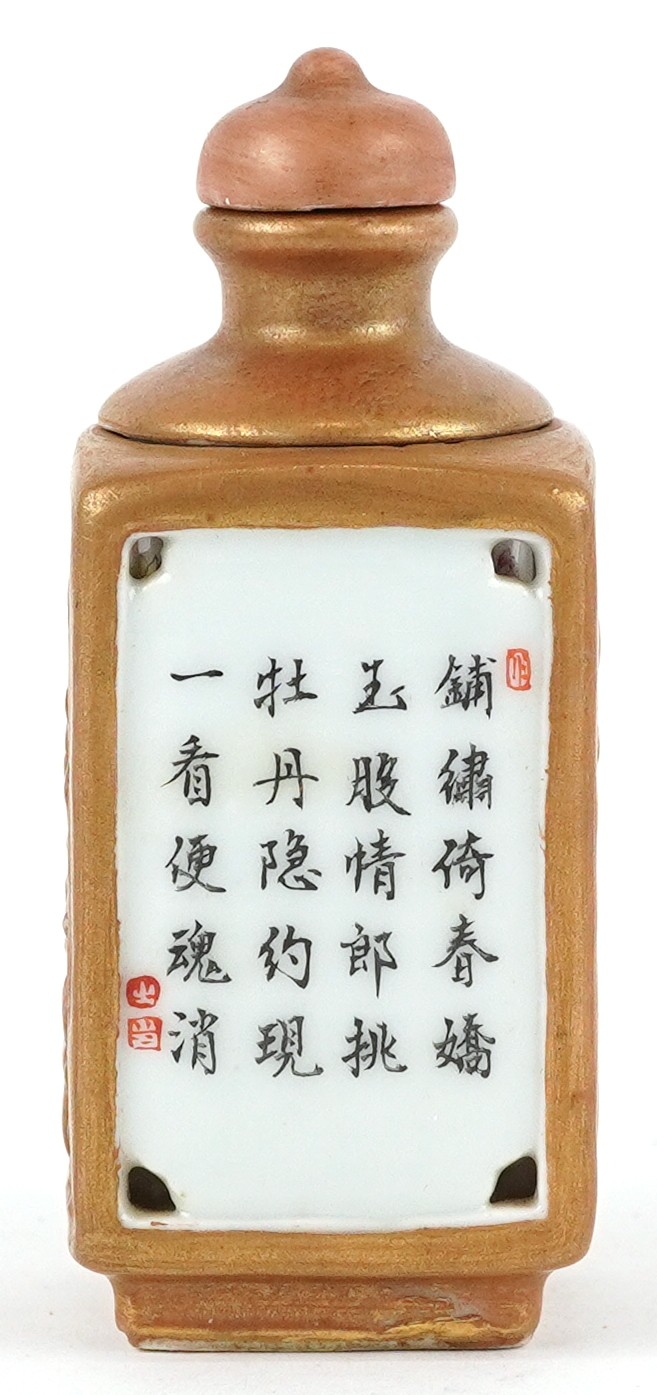 鋪繡倚春嬌
玉股情郎挑
牡丹隐約現
一看便魂消